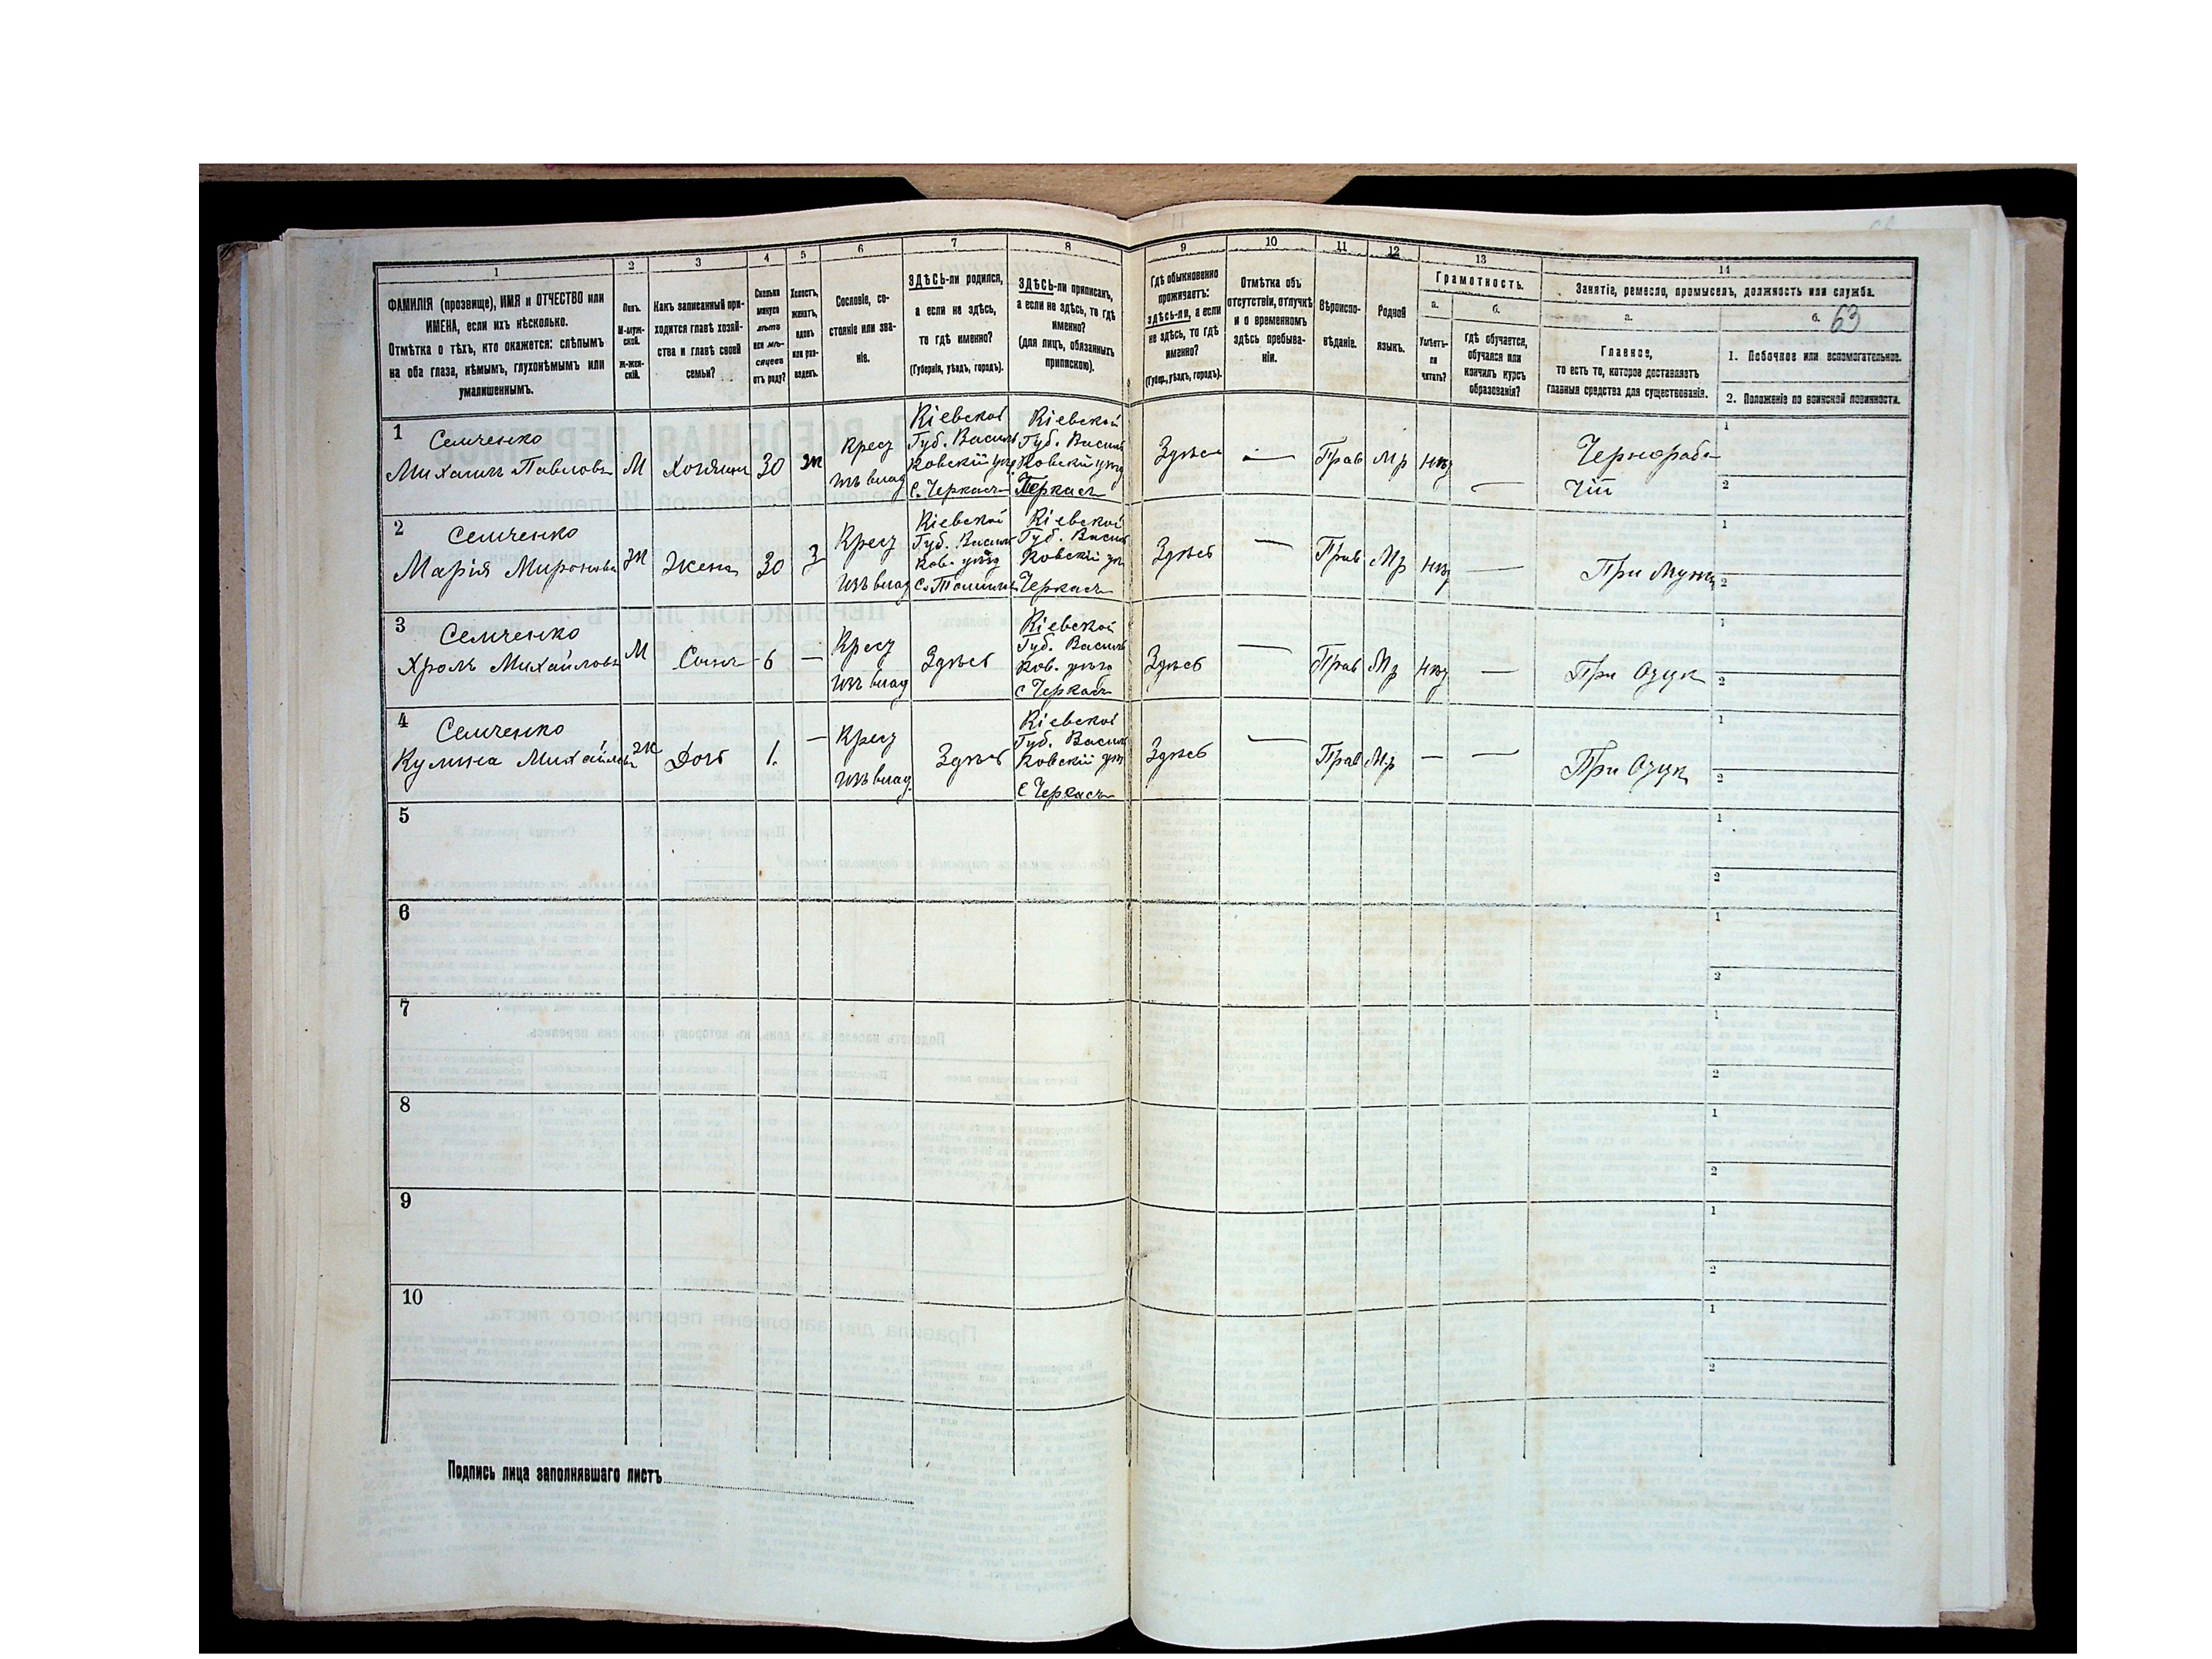 1
2
3
4
5
6
7
8
9
10
11
12
13
14
ФАМИЛІЯ (прозвище), ИМЯ и ОТЧЕСТВО или
ИМЕНА, если ихъ нѣсколько.
Отмѣтка о тѣхъ, кто окажется: слѣпымъ
на оба глаза, нѣмымъ, глухонѣмымъ или
умалишеннымъ.
Полъ.
М-муж-
ской.
ж-жен-
скій.
Какъ записанный при-
ходится главѣ хозяй-
ства и главѣ своей
семьи?
Сколько
минуло
лѣтъ
или мѣ-
сяцевъ
отъ роду?
Холостъ,
женатъ,
вдовъ
или раз-
веденъ.
Сословіе, со-
стояніе или зва-
ніе.
ЗДѢСЬ-ли родился,
а если не здѣсь,
то гдѣ именно?
(Губернія, уѣздъ, городъ).
ЗДѢСЬ-ли приписанъ,
а если не здѣсь, то гдѣ
именно?
(для лицъ, обязанныхъ
припискою).
Гдѣ обыкновенно
проживаетъ:
здѣсь-ли, а если
не здѣсь, то гдѣ
именно?
(Губер., уѣздъ, городъ).
Отмѣтка объ
отсутствіи, отлучкѣ
и о временномъ
здѣсь пребыва-
ніи.
Вѣроиспо-
вѣданіе.
Родной
языкъ.
Грамотность.
а.
б.
Умѣетъ-
ли
читать?
Гдѣ обучается,
обучался или
кончилъ курсъ
образованія?
Занятіе, ремесло, промыселъ, должность или служба.
а.
б.
63
Главное,
то есть то, которое доставляетъ
главныя средства для существованія.
1. Побочное или вспомогательное.
2. Положеніе по воинской повинности.
1
Семченко
Михаилъ Павловъ
М
Хозяинъ
30
ж
Крес
изъ влад
Кіевской
Губ. Василь
ковскій уѣзд
с. Черкасъ
Кіевской
Губ. Василь
ковскій уѣзд
Черкасъ
Здѣсь
—
Прав
Мр
нѣт
—
Чернорабо
чій
1
2
2
Семченко
Марія Миронова
Ж
Жена
30
З
Крес
изъ влад
Кіевской
Губ. Василь
ков. уѣзд
Кіевской
Губ. Василь
ковскій уѣ
Черкасъ
Здѣсь
—
Прав
Мр
нѣт
—
При Мужѣ
1
2
3
Семченко
Хролъ Михайловъ
М
Сынъ
6
—
Крес
изъ влад
Здѣсь
Кіевской
Губ. Василь
ков. уѣзд
с Черкасъ
Здѣсь
—
Прав
Мр
нѣт
—
При Оцук
1
2
4
Семченко
Кулина Михайлов
ж
Доч
1.
—
Крес
изъ влад.
Здѣсь
Кіевской
Губ. Василь
ковскій уѣ
с Черкасъ
Здѣсь
—
Прав
Мр
—
—
При Оцук
1
2
5
1
2
6
1
2
7
1
2
8
1
2
9
1
2
10
1
2
Подпись лица заполнявшаго листъ